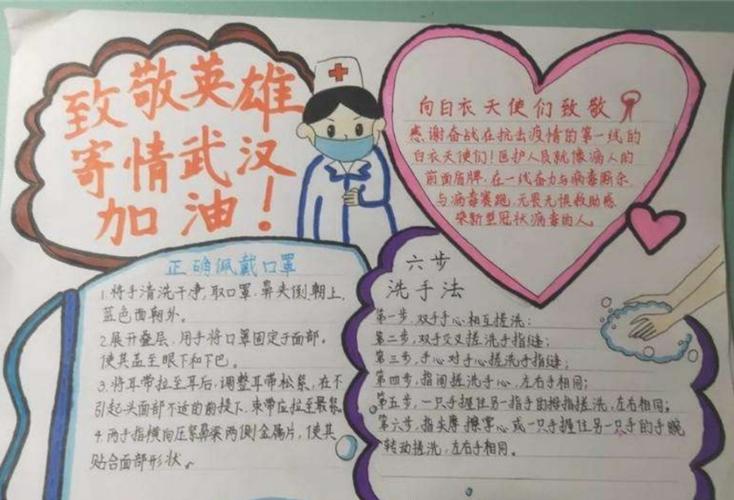 致敬英雄
寄情武汉
加油！
向白衣天使们致敬
感谢奋战在抗击疫情的第一线的
白衣天使们！医护人员就像病人的
前面盾牌.在一线奋力与病毒厮杀.
与病毒赛跑.无畏无惧救助感
染新型冠状病毒的人.
正确佩戴口罩
1.将手清洗干净,取口罩.鼻夹侧朝上,
蓝色面朝外.
2.展开叠层,用手将口罩固定于面部.
使其盖至眼下和下巴.
3.将耳带拉至耳后,调整耳带松紧,在不
引起头面部不适的前提下.束带应拉至最紧.
4.两手指横向压紧鼻梁两侧金属片,使其
贴合面部形状.
六步
洗手法
第一步,双手手心相互搓洗;
第二步,双手交叉搓洗手指缝;
第三步,手心对手心搓洗手指缝;
第四步,指间搓洗手心,左右手相同;
第五步,一只手握住另一指手的拇指搓洗,左右同;
第六步,指尖摩擦掌心或一只手握住另一只手的手腕
转动搓洗,左右手相同.